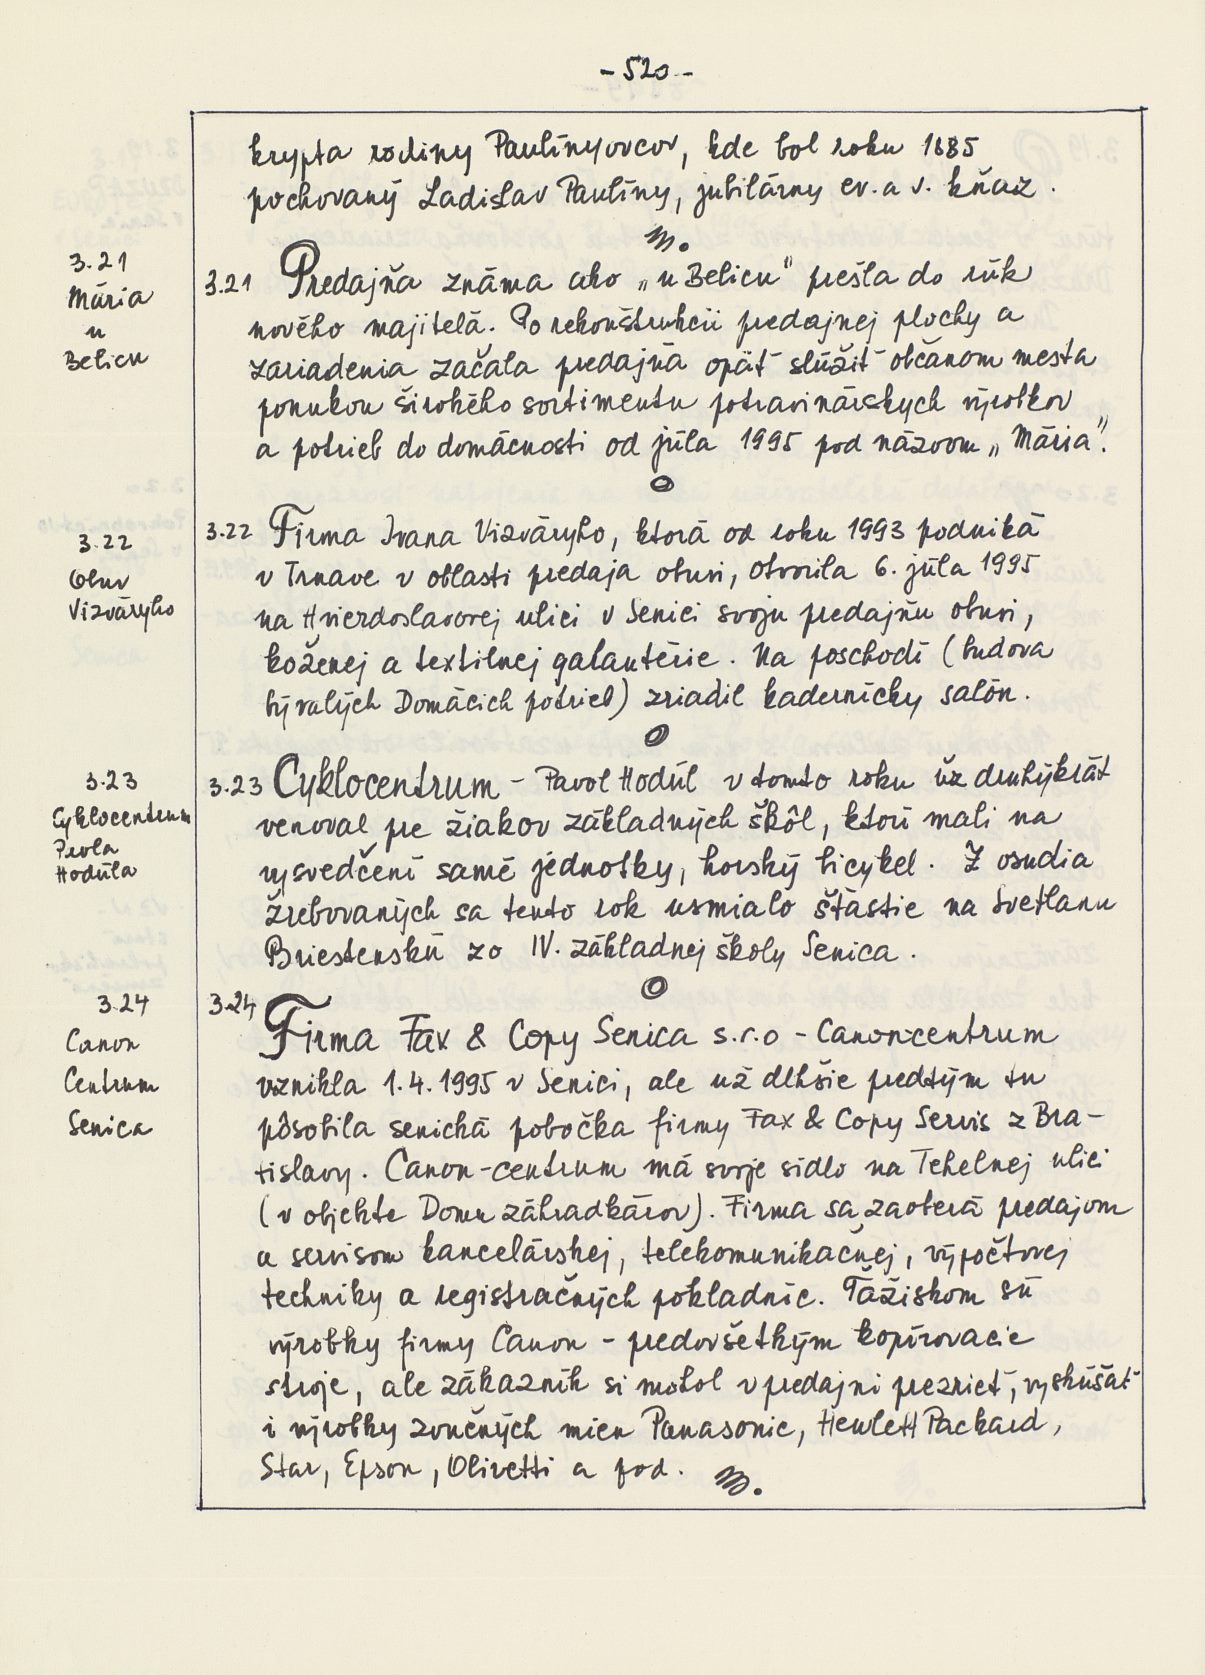 - 520 -
krypta rodiny Paulínyovcov, kde bol roku 1885
pochovaný Ladislav Paulíny, jubilárny ev. a v. kňaz.
3.21
Mária
u
Belicu
3.21 Predajňa známa ako „u Belicu" prešla do rúk
nového majiteľa. Po rekonštrukcii predajnej plochy a
zariadenia začala predajňa opäť slúžiť občanom mesta
ponukou širokého sortimentu potravinárskych výrobkov
a potrieb do domácnosti od júla 1995 pod názvom „Mária".
3.22
Obuv
Vizváryho
3.22 Firma Ivana Vizváryho, ktorá od roku 1993 podniká
v Trnave v oblasti predaja obuvi, otvorila 6. júla 1995
na Hviezdoslavovej ulici v Senici svoju predajňu obuvi,
koženej a textilnej galantérie. Na poschodí (budova
bývalých Domácich potrieb) zriadil kadernícky salón.
3.23
Cyklocentrum
Pavla
Hodúla
3.23 Cyklocentrum - Pavol Hodúl v tomto roku už druhýkrát
venoval pre žiakov základných škôl, ktorí mali na
vysvedčení samé jednotky, horský bicykel. Z osudia
žrebovaných sa tento rok usmialo šťastie na Svetlanu
Briestenskú zo IV. základnej školy Senica.
3.24
Canon
Centrum
Senica
3.24 Firma Fax & Copy Senica s.r.o - Canon-centrum
vznikla 1.4.1995 v Senici, ale už dlhšie predtým tu
pôsobila senická pobočka firmy Fax & Copy Servis z Bra-
tislavy. Canon-centrum má svoje sídlo na Tehelnej ulici
(v objekte Domu záhradkárov). Firma sa zaoberá predajom
a servisom kancelárskej, telekomunikačnej, výpočtovej
techniky a registračných pokladníc. Ťažiskom sú
výrobky firmy Canon - predovšetkým kopírovacie
stroje, ale zákazník si mohol v predajni prezrieť, vyskúšať
i výrobky zvučných mien Panasonic, Hewlett Packard,
Star, Epson, Olivetti a pod.